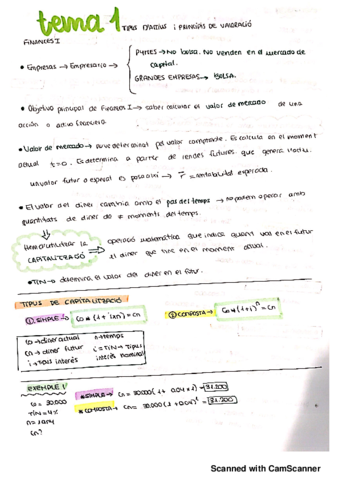 tema 1 TIPUS D'ACTIUS I PRINCIPIS DE VALORACIÓ
FINANCES I
PYMES → No bolsa. No venden en el mercado de
• Empreses → Empresario → capital.
GRANDES EMPRESAS → BOLSA.
• Objectiu principal de Finances I → saber calcular el valor de mercado de una
acción o actiu financiero.
• Valor de mercado → pel valor comptable. Es calcula en el moment
actual t=0. Es determina a partir de rendes futures que genera l'actiu.
un valor futur o esperat es posa així → r̄ = rentabilitat esperada.
• El valor del diner canvia amb el pas del temps → no podem operar amb
quantitats de diner de ≠ moments del temps.
Hem d'utilitzar la CAPITALITZACIÓ ⇒ operació matemàtica que indica quant val en el futur
el diner que tinc en el moment actual.
• TIN → determina el valor del diner en el futur.
TIPUS DE CAPITALITZACIÓ
① SIMPLE → Co * (1 + i×n) = Cn
② COMPOSTA → Co * (1+i)ⁿ = Cn
Co → diner actual n → temps
Cn → diner futur i = TIN → Tipus
i → Tipus interès interès nominal
EXEMPLE 1
Co = 30.000
TIN = 4%
n = 1 any
Cn?
* SIMPLE → Cn = 30.000 (1 + 0,04×1) = 31.200
* COMPOSTA → Cn = 30.000 (1 + 0,04)¹ = 31.200
Scanned with CamScanner